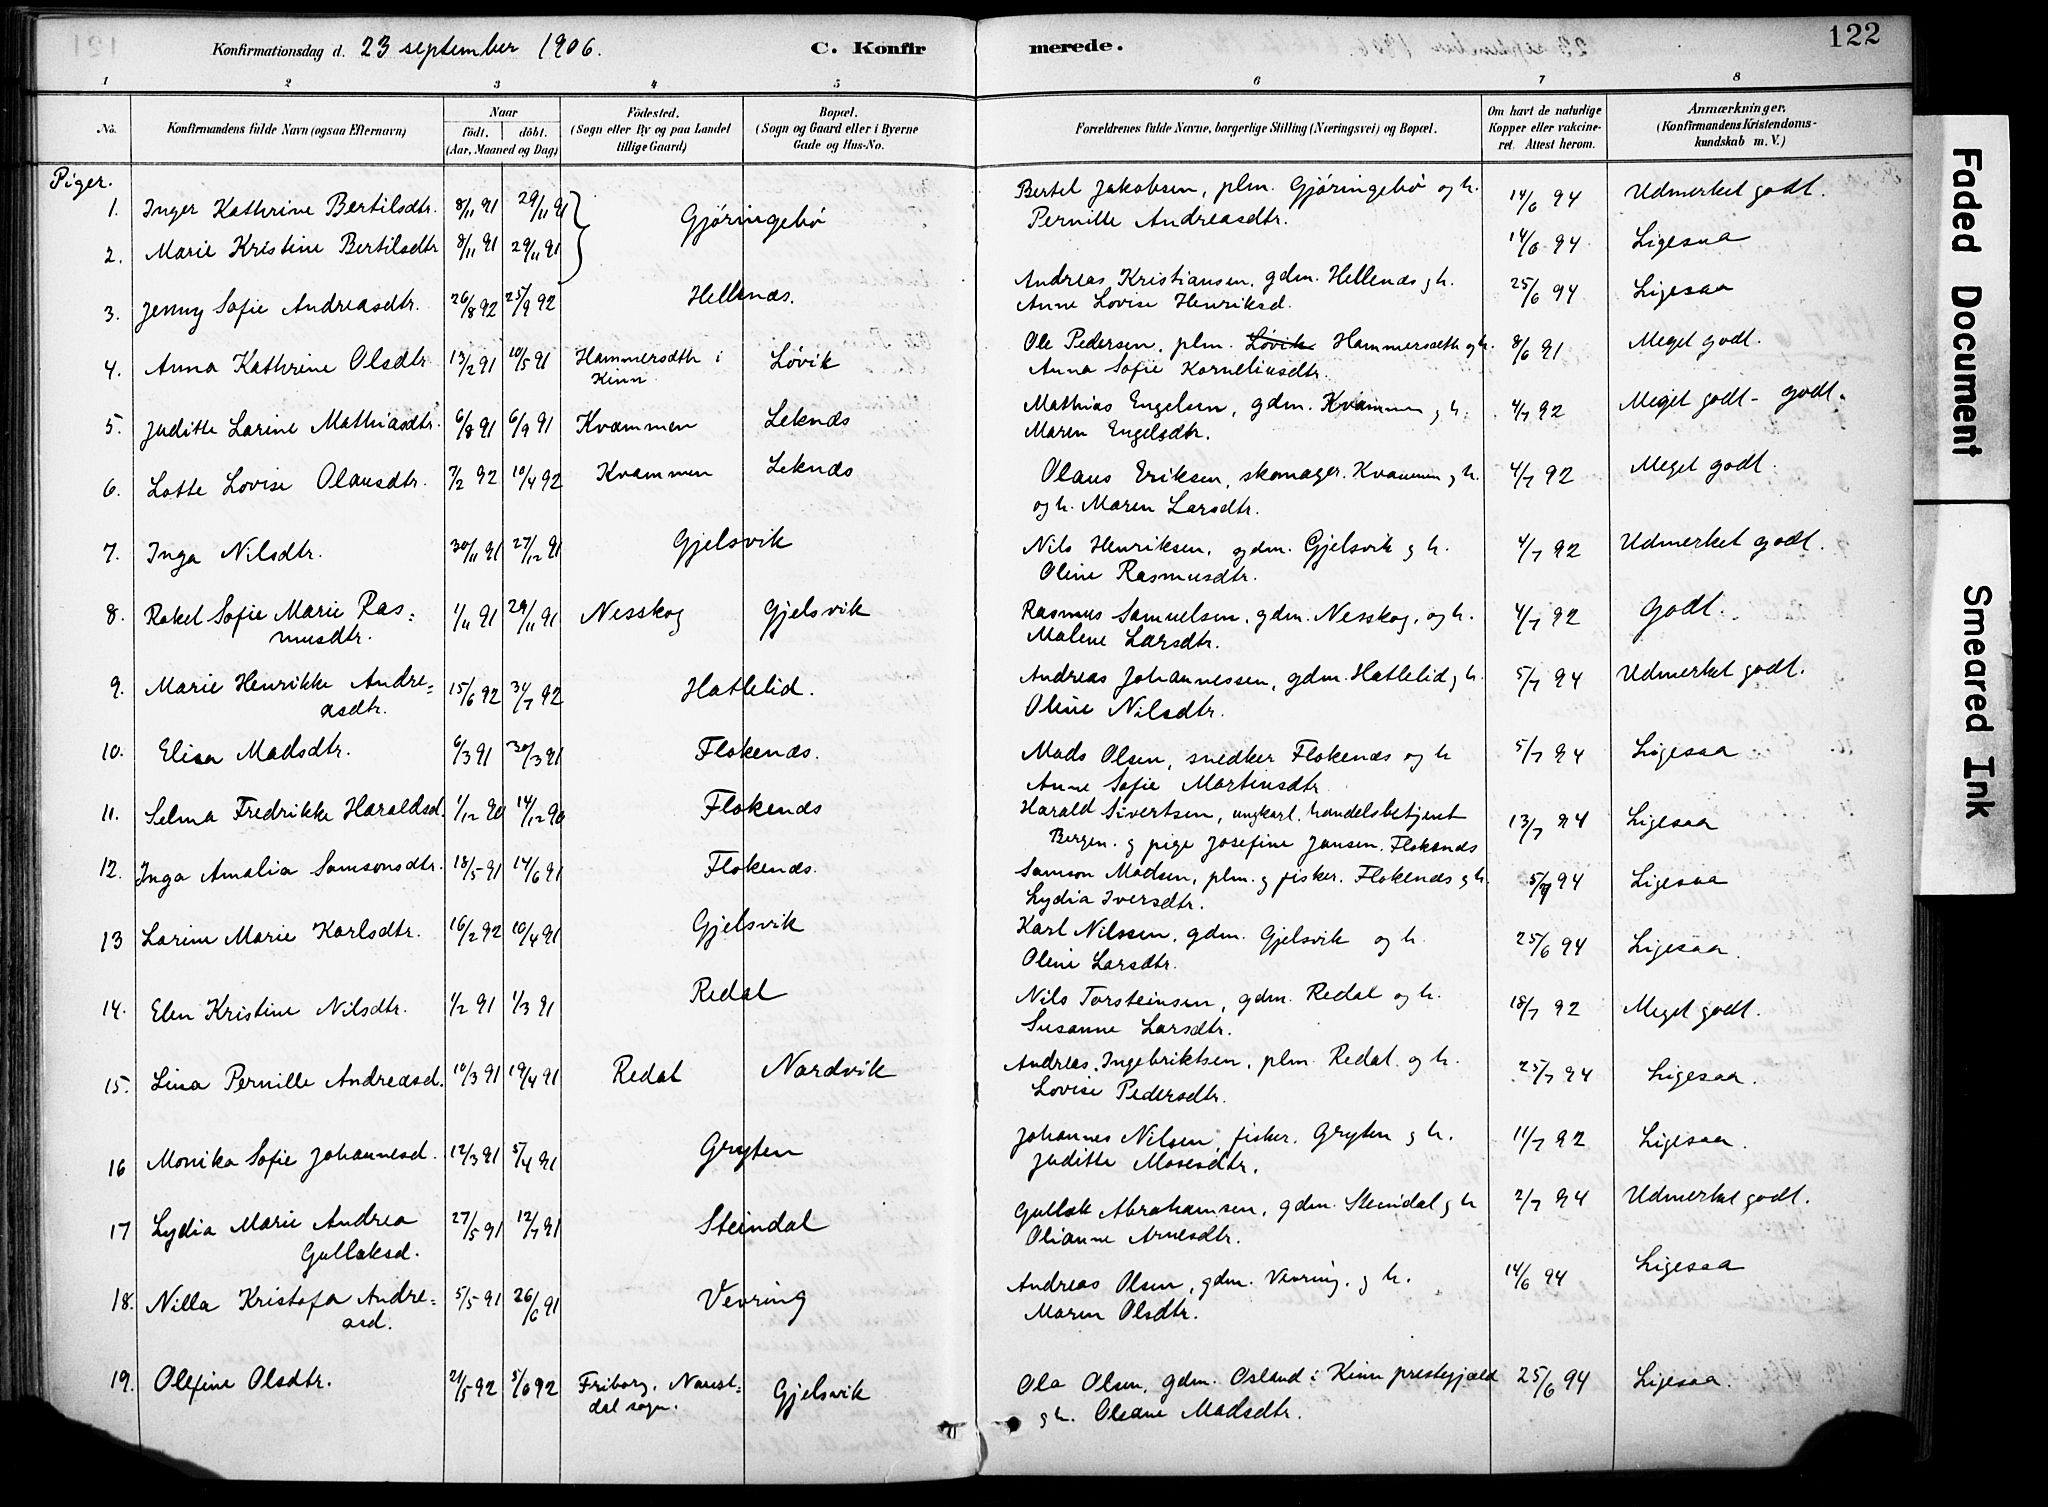 Konfirmationsdag d. 23 september 1906. C. Konfirmerede. 122
1 2 3 4 5 6 7 8
No. Konfirmandens fulde Navn (ogsaa Efternavn) Naar födt. döbt. (Aar, Maaned og Dag) Födested. (Sogn eller By og paa Landet tillige Gaard) Bopæl. (Sogn og Gaard eller i Byerne Gade og Hus-No. Forældrenes fulde Navne, borgerlige Stilling (Næringsvei) og Bopæl. Om havt de naturlige Kopper eller vakcineret. Attest herom. Anmærkninger. (Konfirmandens Kristendomskundskab m. V.)
Piger.
1. Inger Kathrine Bertilsdtr. 8/11 91 29/11 91 Gjøringebø Bertel Jakobsen, plm. Gjøringebø og h. 14/6 94 Udmerket godt.
Pernille Andreasdtr.
2. Marie Kristine Bertilsdtr 8/11 91 29/11 91 14/6 94 Ligesaa
3. Jenny Sofie Andreasdtr. 26/8 92 25/9 92 Hellenæs. Andreas Kristiansen, gdm. Hellenæs og h. 25/6 94 Ligesaa
Anne Lovise Henriksd.
4. Anna Kathrine Olsdtr. 13/2 91 10/5 91 Hammersæth i Løvik Ole Pedersen, plm. Løvik Hammersæth og h. 8/6 91 Meget godt.
Kinn Anna Sofie Korneliusdtr.
5. Juditte Larine Mathiasdtr. 6/8 91 6/9 91 Kvammen Leknæs Mathias Engelsen, gdm. Kvammen og h. 4/7 92 Meget godt - godt.
Maren Engelsdtr.
6. Lotte Lovise Olausdtr. 7/2 92 10/4 92 Kvammen Leknæs Olaus Eriksen, skomager. Kvammen og h. 4/7 92 Meget godt.
og h. Maren Larsdtr.
7. Inga Nilsdtr. 30/11 91 27/12 91 Gjelsvik Nils Henriksen, gdm. Gjelsvik og h. 4/7 92 Udmerket godt.
Oline Rasmusdtr.
8. Rakel Sofie Marie Ras= 1/11 91 29/11 91 Nesskog Gjelsvik Rasmus Samuelsen, gdm. Nesskog, og h. 4/7 92 Godt.
musdtr. Malene Larsdtr.
9. Marie Henrikke Andre= 15/6 92 31/7 92 Hatlelid. Andreas Johannessen, gdm. Hatlelid og h. 5/7 94 Udmerket godt.
asdtr. Oline Nilsdtr.
10. Elisa Madsdtr. 6/3 91 30/3 91 Flokenæs. Mads Olsen, snedker Flokenæs og h 5/7 94 Ligesaa
Anne Sofie Martinusdtr
11. Selma Fredrikke Haraldsd. 1/12 90 14/12 90 Flokenæs Harald Sivertsen, ungkarl, handelsbetjent 13/7 94 Ligesaa
Bergen. og pige Josefine Jansen. Flokenæs
12. Inga Amalia Samsonsdtr. 18/5 91 14/6 91 Flokenæs. Samson Madsen, plm. og fisker. Flokenæs og h. 5/7 94 Ligesaa
Lydia Iversdtr.
13 Larine Marie Karlsdtr. 16/2 92 10/4 91 Gjelsvik Karl Nilssen, gdm. Gjelsvik og h. 25/6 94 Ligesaa.
Oline Larsdtr.
14. Elen Kristine Nilsdtr. 1/2 91 1/3 91 Redal Nils Torsteinsen, gdm. Redal og h. 18/7 92 Meget godt.
Susanne Larsdtr.
15. Lina Pernille Andreasd. 10/3 91 19/4 91 Redal Nordvik Andreas Ingebriktsen, plm. Redal og h. 25/7 94 Ligesaa.
Lovise Pedersdtr.
16 Monika Sofie Johannesd. 12/3 91 5/4 91 Gryten Johannes Nilsen, fisker. Gryten og h. 11/7 92 Ligesaa.
Juditte Mosesdtr.
17 Lydia Marie Andrea 27/5 91 12/7 91 Steindal Gullak Abrahamsen, gdm. Steindal og h 2/7 94 Udmerket godt.
Gullaksd. Olianne Arnesdtr.
18. Nilla Kristofa Andre= 5/5 91 26/6 91 Vevring Andreas Olsen, gdm. Vevring. og h. 14/6 94 Ligesaa
asd. Maren Olsdtr.
19. Olefine Olsdtr. 21/5 92 5/6 92 Friborg, Naust= Gjelsvik Ola Olsen, gdm. Osland i Kinn prestegjæld 25/6 94 Ligesaa.
dal sogn. og h. Oleane Madsdtr.
Faded Document
Smeared Ink